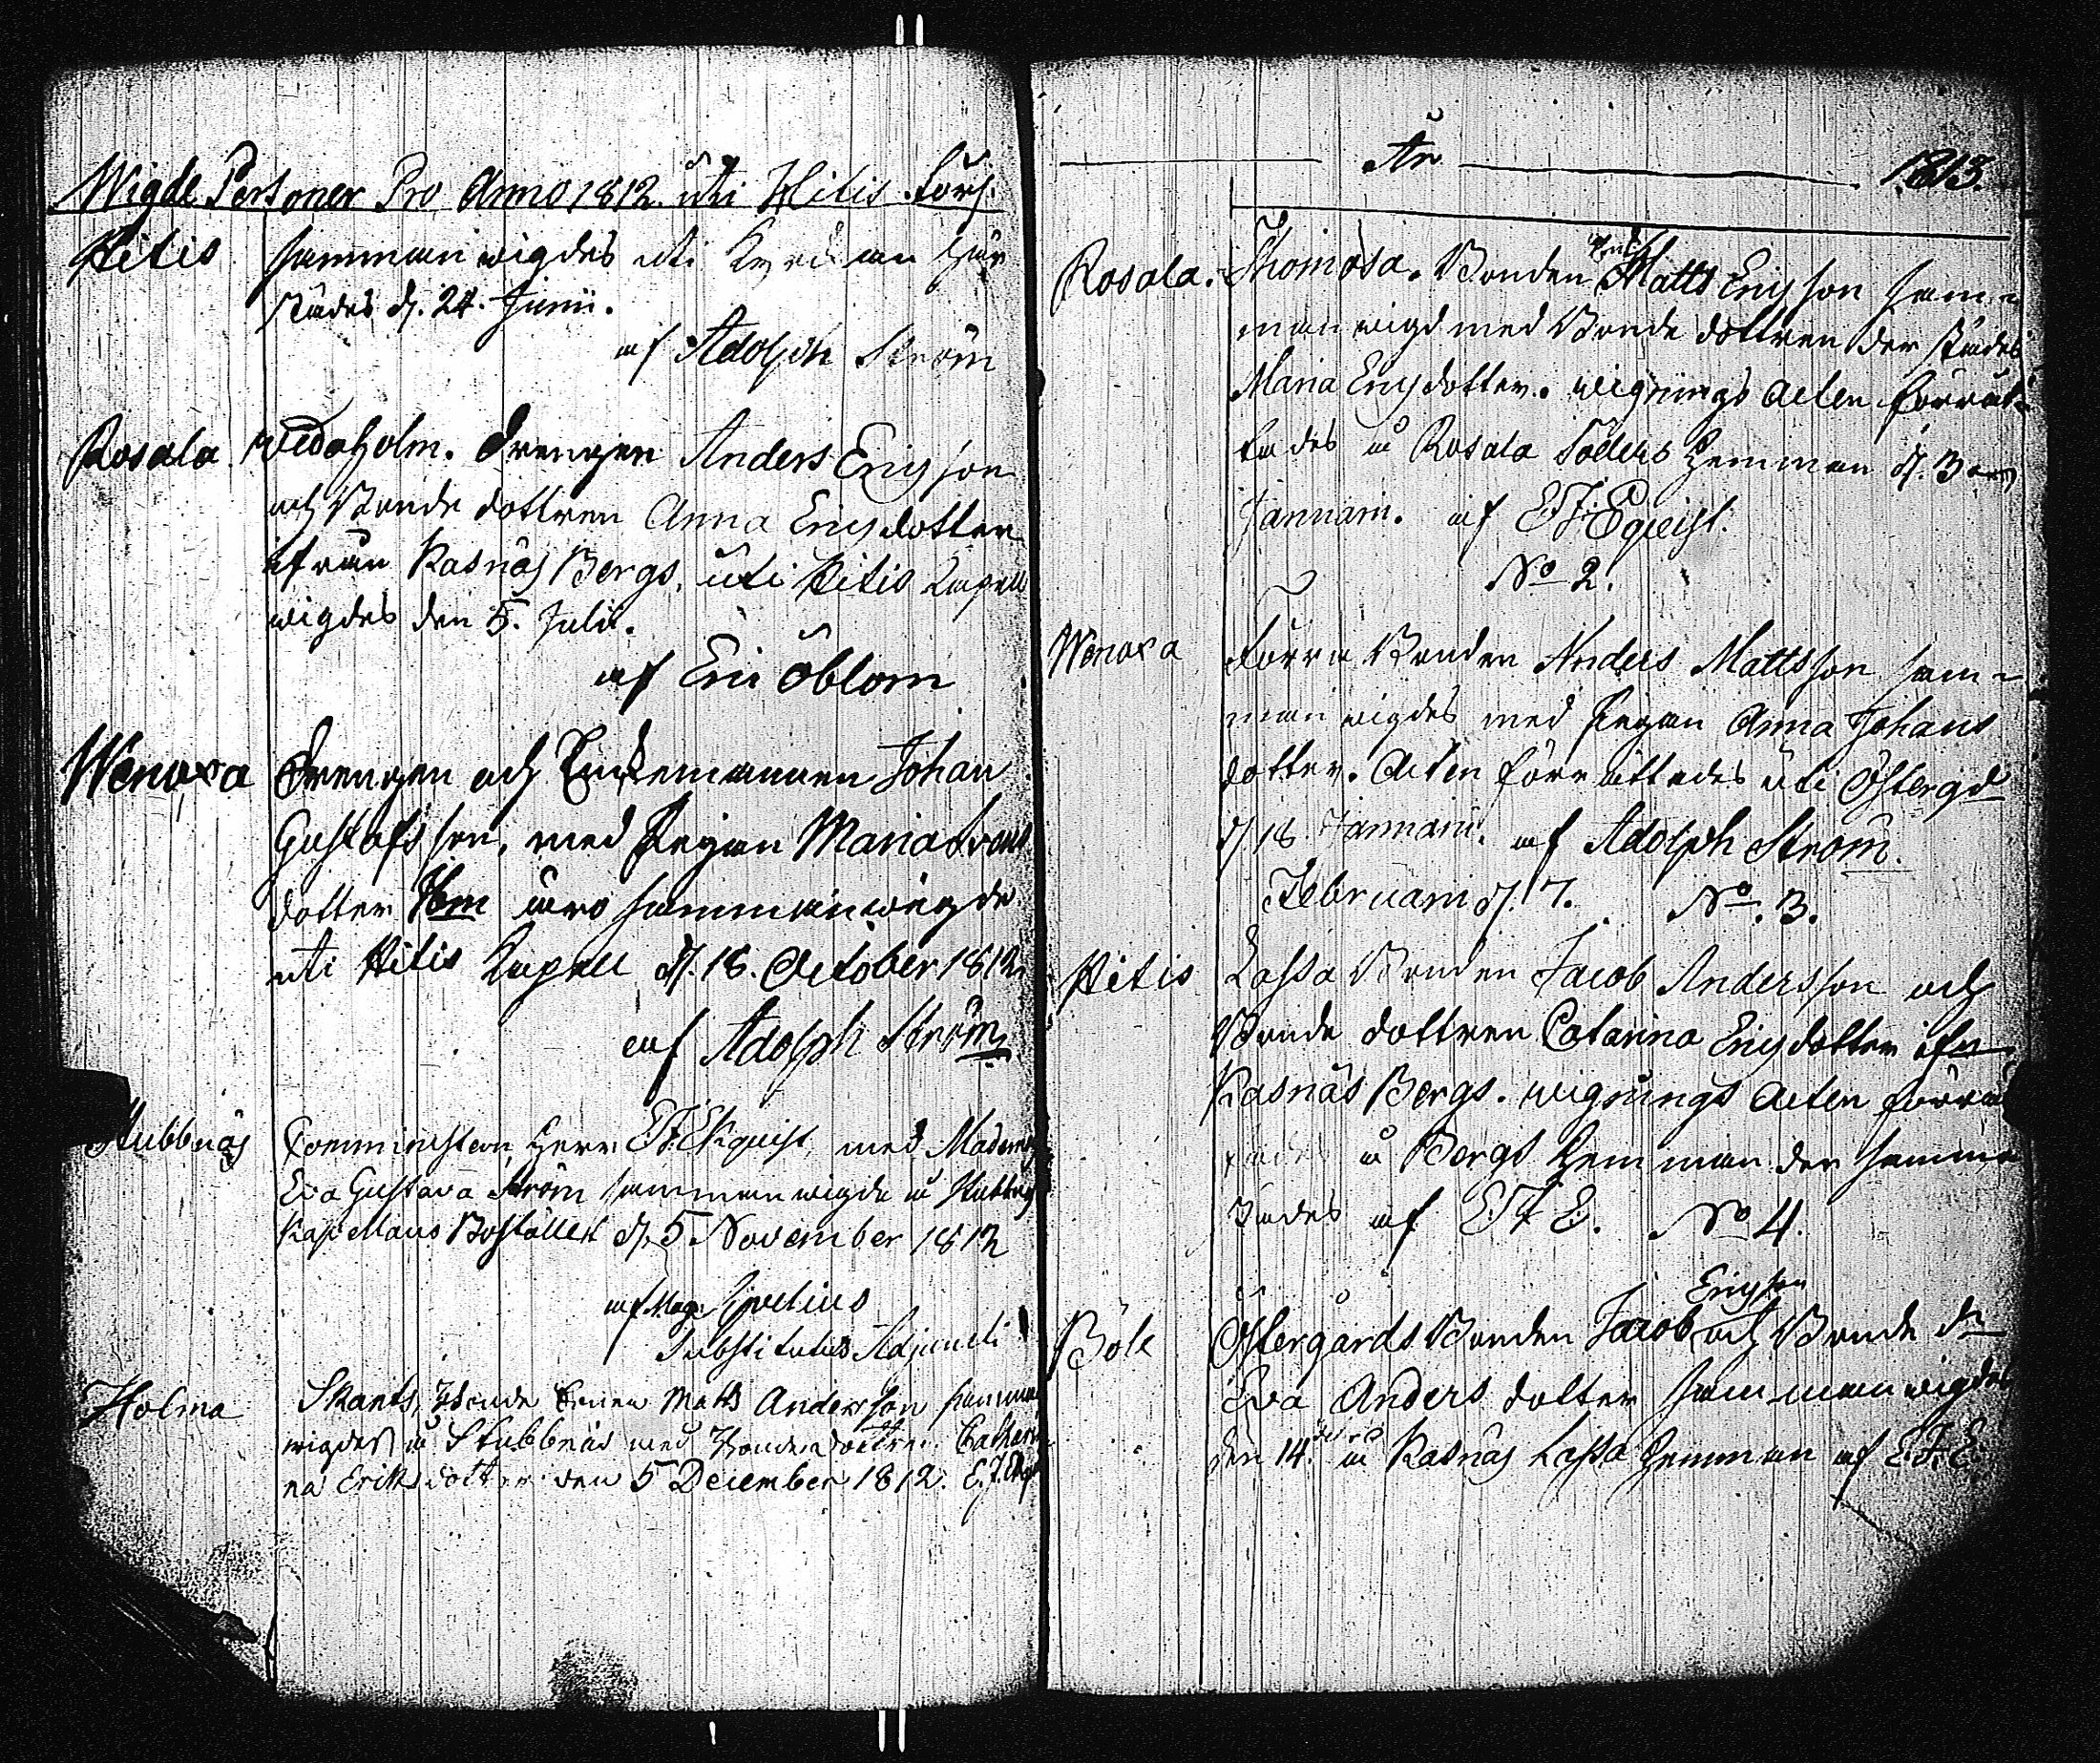 Wigde Personer Pro Anno 1812. uti Hitis Förs.
Hitis sammanwigdes uti Kyrckan här
städes d. 24. Junii.
af Adolph Ström
Rosala Wedaholm. Drengen Anders Ericsson
och Bonde dottren Anna Ericsdotter
ifrån Kasnäs Bergs, uti Hitis Capell
wigdes den 5. Julii.
af Eric Öblom
Wenoxa Drengen och Enckemannen Johan
Gustafsson, med Pigan Maria
dotter äro sammanwigde
uti Hitis Capell d. 18. October 1812
af Adolph Ström
Stubbnäs Comministern Herr E. F. Ekquist, med
Eva Gustava Ström sammanwigde å
Bostället d. 5 November 1812
af Mag.
Substitutus Adjuncti
Holma Skants, Bonde Matts Andersson samman
wigdes å Stubbnäs med Bondedottren Cathari
na Eriksdotter den 5 December 1812. E. F.
År 1813.
Rosala. Thomosa. Bonden Matts Ericsson sam-
man wigd med Bonde dottren der städes
Maria Ericsdotter. wignings acten förrät-
tades å Rosala Söders Hemman d. 3
Januarii. af E. F. Eqvist.
No 2.
Wenoxa Bonden Anders Mattsson sam-
man wigdes med Pigan Anna Johans
dotter. Acten förrättades uti Östergd
d 18 Januarii. af Adolph Ström.
Februarii d. 7. No. 3.
Hitis Lassa Bonden Jacob Andersson och
Bonde dottren Catarina Ericsdotter ifrn
Kasnäs Bergs. wignings Acten förrät
tades å Bergs Hemman der samma
stades af E. F. E. No 4.
Ericsson
Böle Östergårds Bonden Jacob och Bonde dr
Eva Anders dotter sammanwigdes
den 14. å Kasnäs Lassa Hemman af E. F. E.